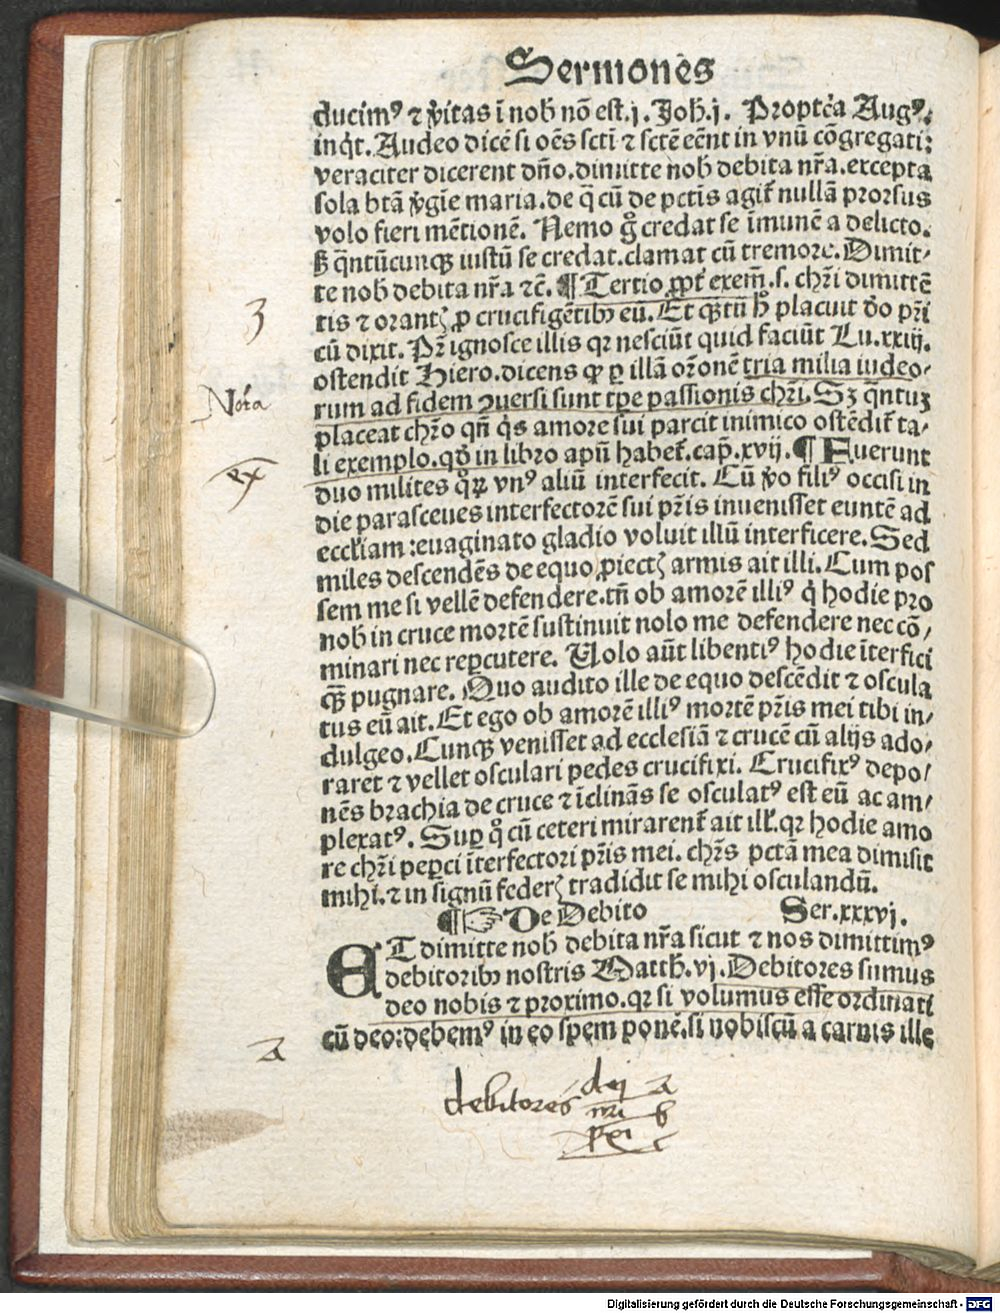 Sermonēs
ducimꝰ ⁊ v̓itas ī nob̄ nō est.j. Joh̄.j. Propt̓ea Augꝰ.
inq̇t. Audeo dicē si oēs sct̄i ⁊ sct̄e eēnt in vnū cōgregati:
veraciter dicerent dn̄o.dimitte nob̄ debita nr̄a.excepta
sola btā v̓gīe maria.de q̄ cū de pctīs agit̄ nullā prorsus
volo fieri mētionē. Nemo g̊ credat se īmunē a delicto.
ß q̄ntūcunqꝫ iustū se credat.clamat cū tremore.Dimit-
te nob̄ debita nr̄a ⁊c̄. ¶ Tertio ꝓpt̄ exem̄.s. chr̄i dimittē
3
tis ⁊ orantꝭ ꝓ crucifigētibꝰ eū. Et qꝫtū h̄ placuit do pr̄i
cū dixit. Pr̄ ignosce illis qꝛ nesciūt quid faciūt Lu.xxiij.
ostendit Hiero.dicens ꝙ ꝑ illā or̄onē tria milia iudeo-
Nota
rum ad fidem ꝯuersi sunt tꝑe passionis chr̄i. Sꝫ q̄ntuꝫ
placeat chr̄o qn̄ q̇s amore sui parcit inimico ostēdit̄ ta-
li exemplo.qd̓ in libro apū habet̄.cap̄.xvij. ¶ Fuerunt
duo milites qꝝ̊ vnꝰ aliū interfecit. Cū v̓o filiꝰ occisi in
die parasceues interfectorē sui pr̄is inuenisset euntē ad
eccłiam:euaginato gladio voluit illū interficere. Sed
miles descendēs de equo ꝓiectꝭ armis ait illi. Cum pos
sem me si vellē defendere.tn̄ ob amorē illiꝰ q̇ hodie pro
nob̄ in cruce mortē sustinuit nolo me defendere nec cō-
minari nec reꝑcutere. Uolo aūt libentiꝰ hodie īterfici
qꝫ̄ pugnare. Quo audito ille de equo descēdit ⁊ oscula
tus eū ait. Et ego ob amorē illiꝰ mortē pr̄is mei tibi in-
dulgeo. Cunqꝫ venisset ad ecclesiā ⁊ crucē cū alijs ado-
raret ⁊ vellet osculari pedes crucifixi. Crucifixꝰ depo-
nēs brachia de cruce ⁊ īclinās se osculatꝰ est eū ac am-
plexatꝰ. Suꝑ q̊ cū ceteri mirarent̄ ait ill̓.qꝛ hodie amo
re chr̄i peꝑci īterfectori pr̄is mei. chr̄s pctā mea dimisit
mihi.⁊ in signū federꝭ tradidit se mihi osculandū.
¶ ☞ De Debito Ser.xxxvj.
ET dimitte nob̄ debita nr̄a sicut ⁊ nos dimittimꝰ
debitoribꝰ nostris Matth̄.vj. Debitores sumus
deo nobis ⁊ proximo.qꝛ si volumus esse ordinati
cū deo:debemꝰ in eo spem ponē.si nobiscū a carnis ille
a
debitores dei a
nri b
pxi c